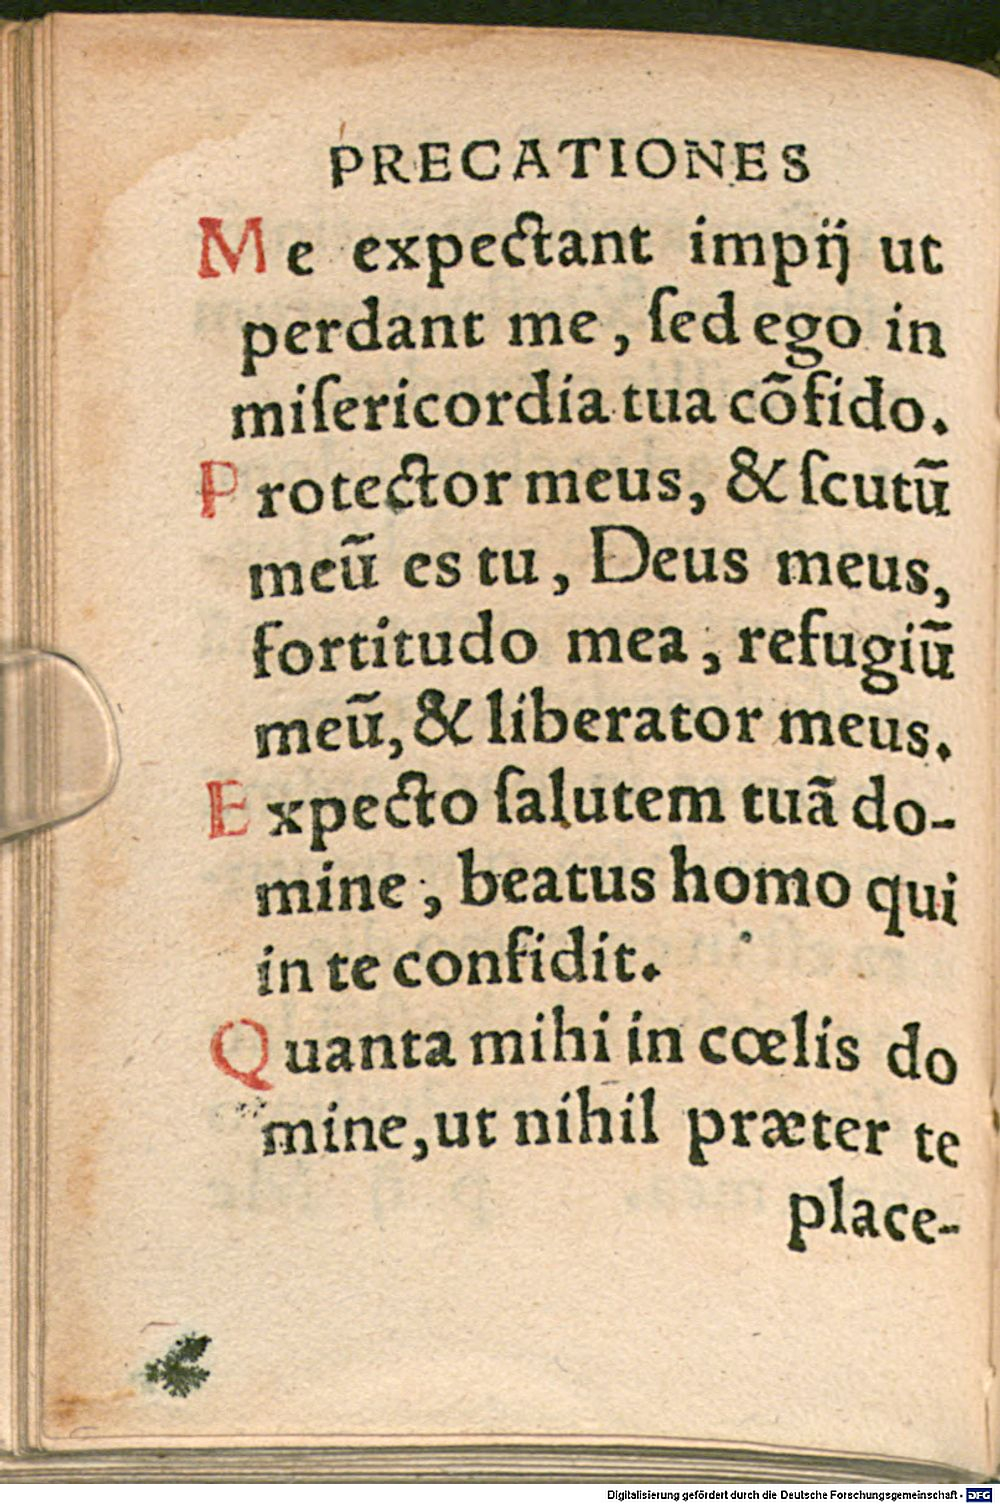 PRECATIONES
Me expectant impĳ ut
perdant me, ſed ego in
miſericordia tua cõfido.
Protector meus, & ſcutũ
meũ es tu, Deus meus,
fortitudo mea, refugiũ
meũ, & liberator meus.
Expecto ſalutem tuã do-
mine, beatus homo qui
in te confidit.
Quanta mihi in cœlis do
mine, ut nihil præter te
place-
Digitalisierung gefördert durch die Deutsche Forschungsgemeinschaft - DFG